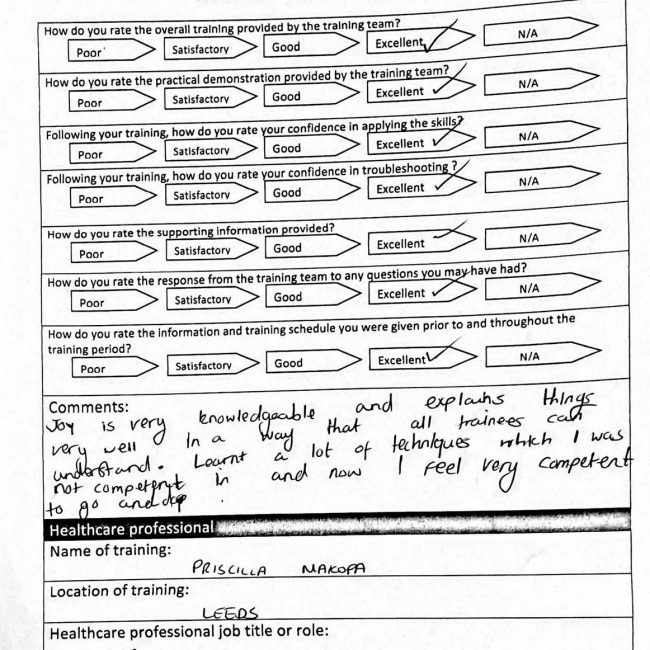 How do you rate the overall training provided by the training team?
Poor Satisfactory Good Excellent N/A
How do you rate the practical demonstration provided by the training team?
Poor Satisfactory Good Excellent N/A
Following your training, how do you rate your confidence in applying the skills?
Poor Satisfactory Good Excellent N/A
Following your training, how do you rate your confidence in troubleshooting ?
Poor Satisfactory Good Excellent N/A
How do you rate the supporting information provided?
Poor Satisfactory Good Excellent N/A
How do you rate the response from the training team to any questions you may have had?
Poor Satisfactory Good Excellent N/A
How do you rate the information and training schedule you were given prior to and throughout the
training period?
Poor Satisfactory Good Excellent N/A
Comments:
Joy is very knowledgeable and explains things
very well in a way that all trainees can
understand. Learnt a lot of techniques which I was
not competent in and now I feel very competent
to go and
Healthcare professional
Name of training:
PRISCILLA MAKOPA
Location of training:
LEEDS
Healthcare professional job title or role: